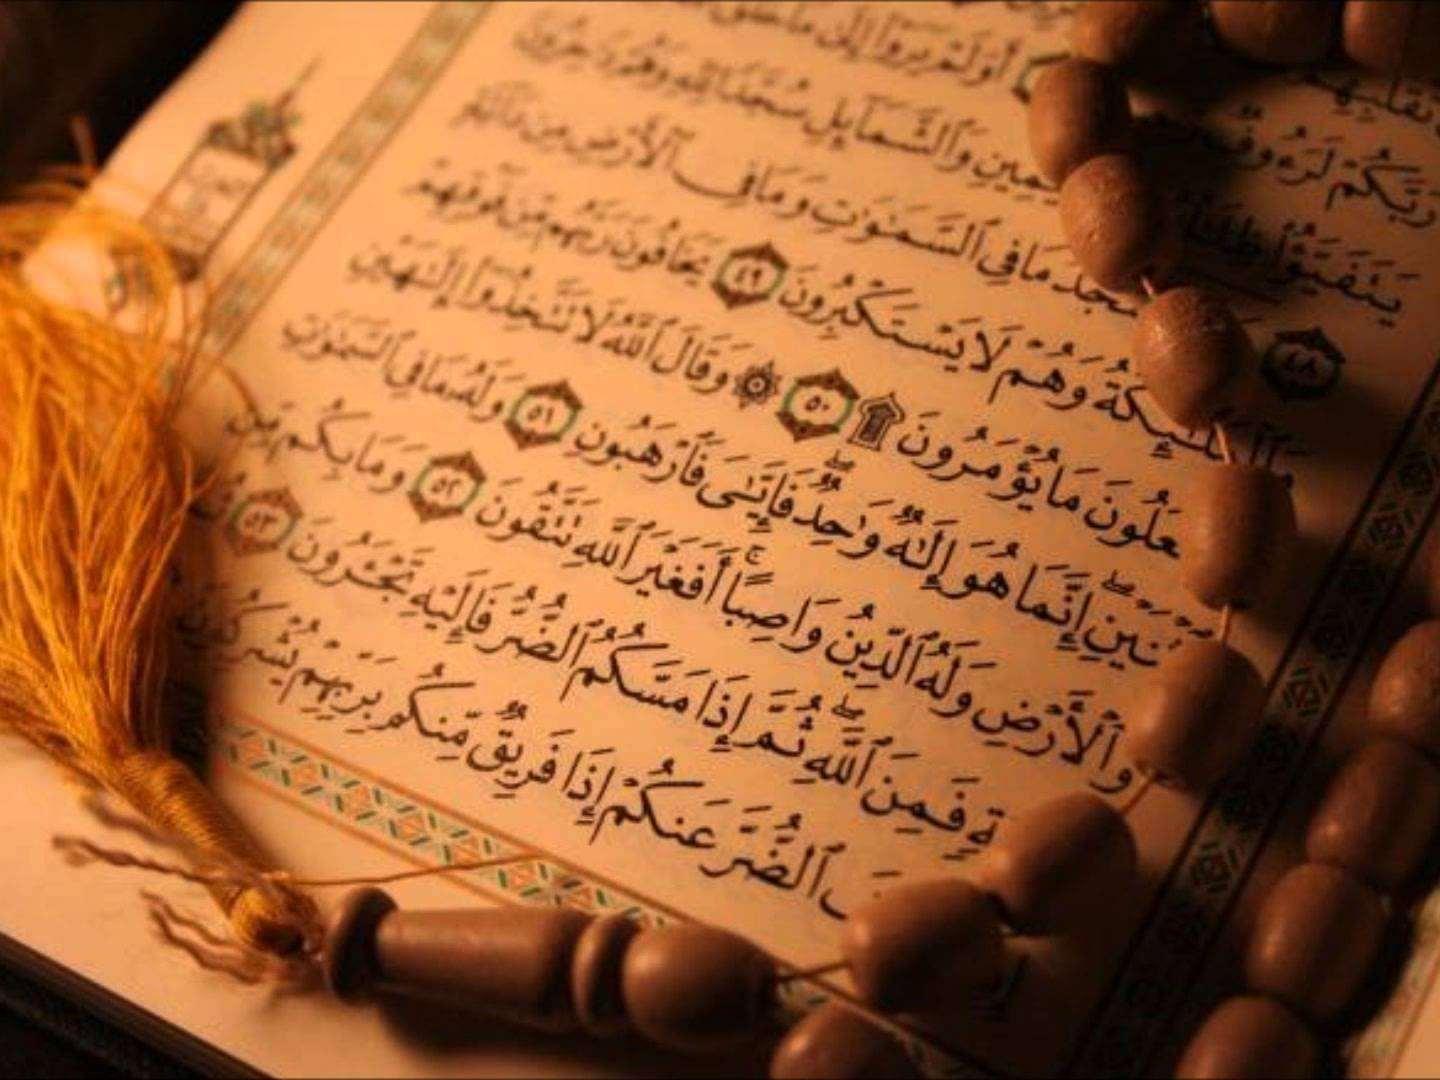 تَقَلُّبِهِمْ
رَبَّكُمْ لَرَءُوفٌ أَوَلَمْ يَرَوْا۟ إِلَىٰ مَا خَلَقَ
يَتَفَيَّؤُا۟ ظِلَٰلُهُۥ ٱلْيَمِينِ وَٱلشَّمَآئِلِ سُجَّدًا لِّلَّهِ وَهُمْ دَٰخِرُونَ
٤٨ يَسْجُدُ مَا فِى ٱلسَّمَٰوَٰتِ وَمَا فِى ٱلْأَرْضِ مِن دَآبَّةٍ
وَٱلْمَلَٰٓئِكَةُ وَهُمْ لَا يَسْتَكْبِرُونَ ٤٩ يَخَافُونَ رَبَّهُم مِّن فَوْقِهِمْ
وَيَفْعَلُونَ مَا يُؤْمَرُونَ ۩ ٥٠ ۞ وَقَالَ ٱللَّهُ لَا تَتَّخِذُوٓا۟ إِلَٰهَيْنِ
ٱثْنَيْنِ ۖ إِنَّمَا هُوَ إِلَٰهٌ وَٰحِدٌ ۖ فَإِيَّٰىَ فَٱرْهَبُونِ ٥١ وَلَهُۥ مَا فِى ٱلسَّمَٰوَٰتِ
وَٱلْأَرْضِ وَلَهُ ٱلدِّينُ وَاصِبًا ۚ أَفَغَيْرَ ٱللَّهِ تَتَّقُونَ ٥٢ وَمَا بِكُم مِّن
نِّعْمَةٍ فَمِنَ ٱللَّهِ ۖ ثُمَّ إِذَا مَسَّكُمُ ٱلضُّرُّ فَإِلَيْهِ تَجْـَٔرُونَ ٥٣
ٱلضُّرَّ عَنكُمْ إِذَا فَرِيقٌ مِّنكُم بِرَبِّهِمْ يُشْرِكُونَ